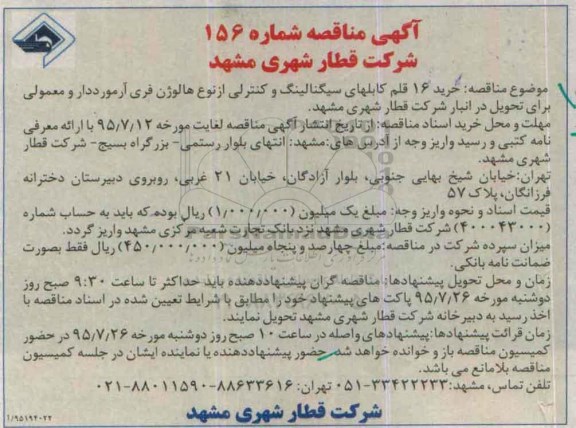 آگهی مناقصه شماره ۱۵۶
شرکت قطار شهری مشهد
موضوع مناقصه: خرید ۱۶ قلم کابلهای سیگنالینگ و کنترلی ازنوع هالوژن فری آرمورددار و معمولی
برای تحویل در انبار شرکت قطار شهری مشهد.
مهلت و محل خرید اسناد مناقصه: از تاریخ انتشار آگهی مناقصه لغایت مورخه ۹۵/۷/۱۲ با ارائه معرفی
نامه کتبی و رسید واریز وجه از آدرس های: مشهد: انتهای بلوار رستمی- بزرگراه بسیج- شرکت قطار
شهری مشهد.
تهران: خیابان شیخ بهایی جنوبی، بلوار آزادگان، خیابان ۲۱ غربی، روبروی دبیرستان دخترانه
فرزانگان، پلاک ۵۷
قیمت اسناد و نحوه واریز وجه: مبلغ یک میلیون (۱/۰۰۰/۰۰۰) ریال بوده که باید به حساب شماره
(۴۰۰۰۴۳۰۰۰) شرکت قطار شهری مشهد نزد بانک تجارت شعبه مرکزی مشهد واریز گردد.
میزان سپرده شرکت در مناقصه: مبلغ چهارصد و پنجاه میلیون (۴۵۰/۰۰۰/۰۰۰) ریال فقط بصورت
ضمانت نامه بانکی.
زمان و محل تحویل پیشنهادها: مناقصه گران پیشنهاددهنده باید حداکثر تا ساعت ۹:۳۰ صبح روز
دوشنبه مورخه ۹۵/۷/۲۶ پاکت های پیشنهاد خود را مطابق با شرایط تعیین شده در اسناد مناقصه با
اخذ رسید به دبیرخانه شرکت قطار شهری مشهد تحویل نمایند.
زمان قرائت پیشنهادها: پیشنهادهای واصله در ساعت ۱۰ صبح روز دوشنبه مورخه ۹۵/۷/۲۶ در حضور
کمیسیون مناقصه باز و خوانده خواهد شد. حضور پیشنهاددهنده یا نماینده ایشان در جلسه کمیسیون
مناقصه بلامانع می باشد.
تلفن تماس، مشهد: ۳۳۴۲۲۲۳۳-۰۵۱ تهران: ۸۸۶۳۳۶۱۶-۸۸۰۱۱۵۹۰-۰۲۱
شرکت قطار شهری مشهد
۱/۹۵۱۹۴۰۲۲